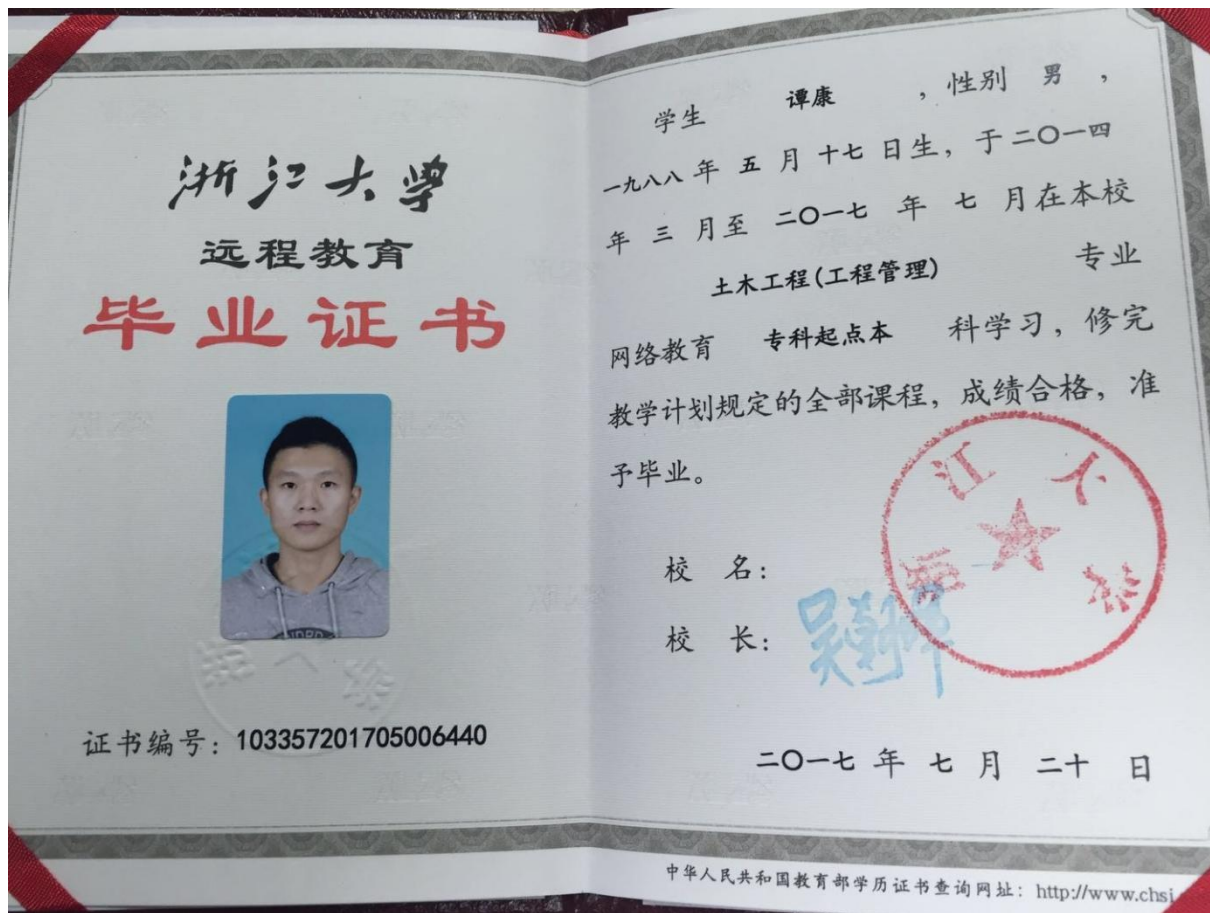 浙江大学
远程教育
毕业证书
证书编号：103357201705006440
学生 谭康 ，性别 男 ，
一九八八 年 五 月 十七 日生，于 二〇一四
年 三 月至 二〇一七 年 七 月在本校
土木工程(工程管理) 专业
网络教育 专科起点本 科学习，修完
教学计划规定的全部课程，成绩合格，准
予毕业。
浙江大学
校 名：
校 长：
二〇一七 年 七 月 二十 日
中华人民共和国教育部学历证书查询网址：http://www.chsi